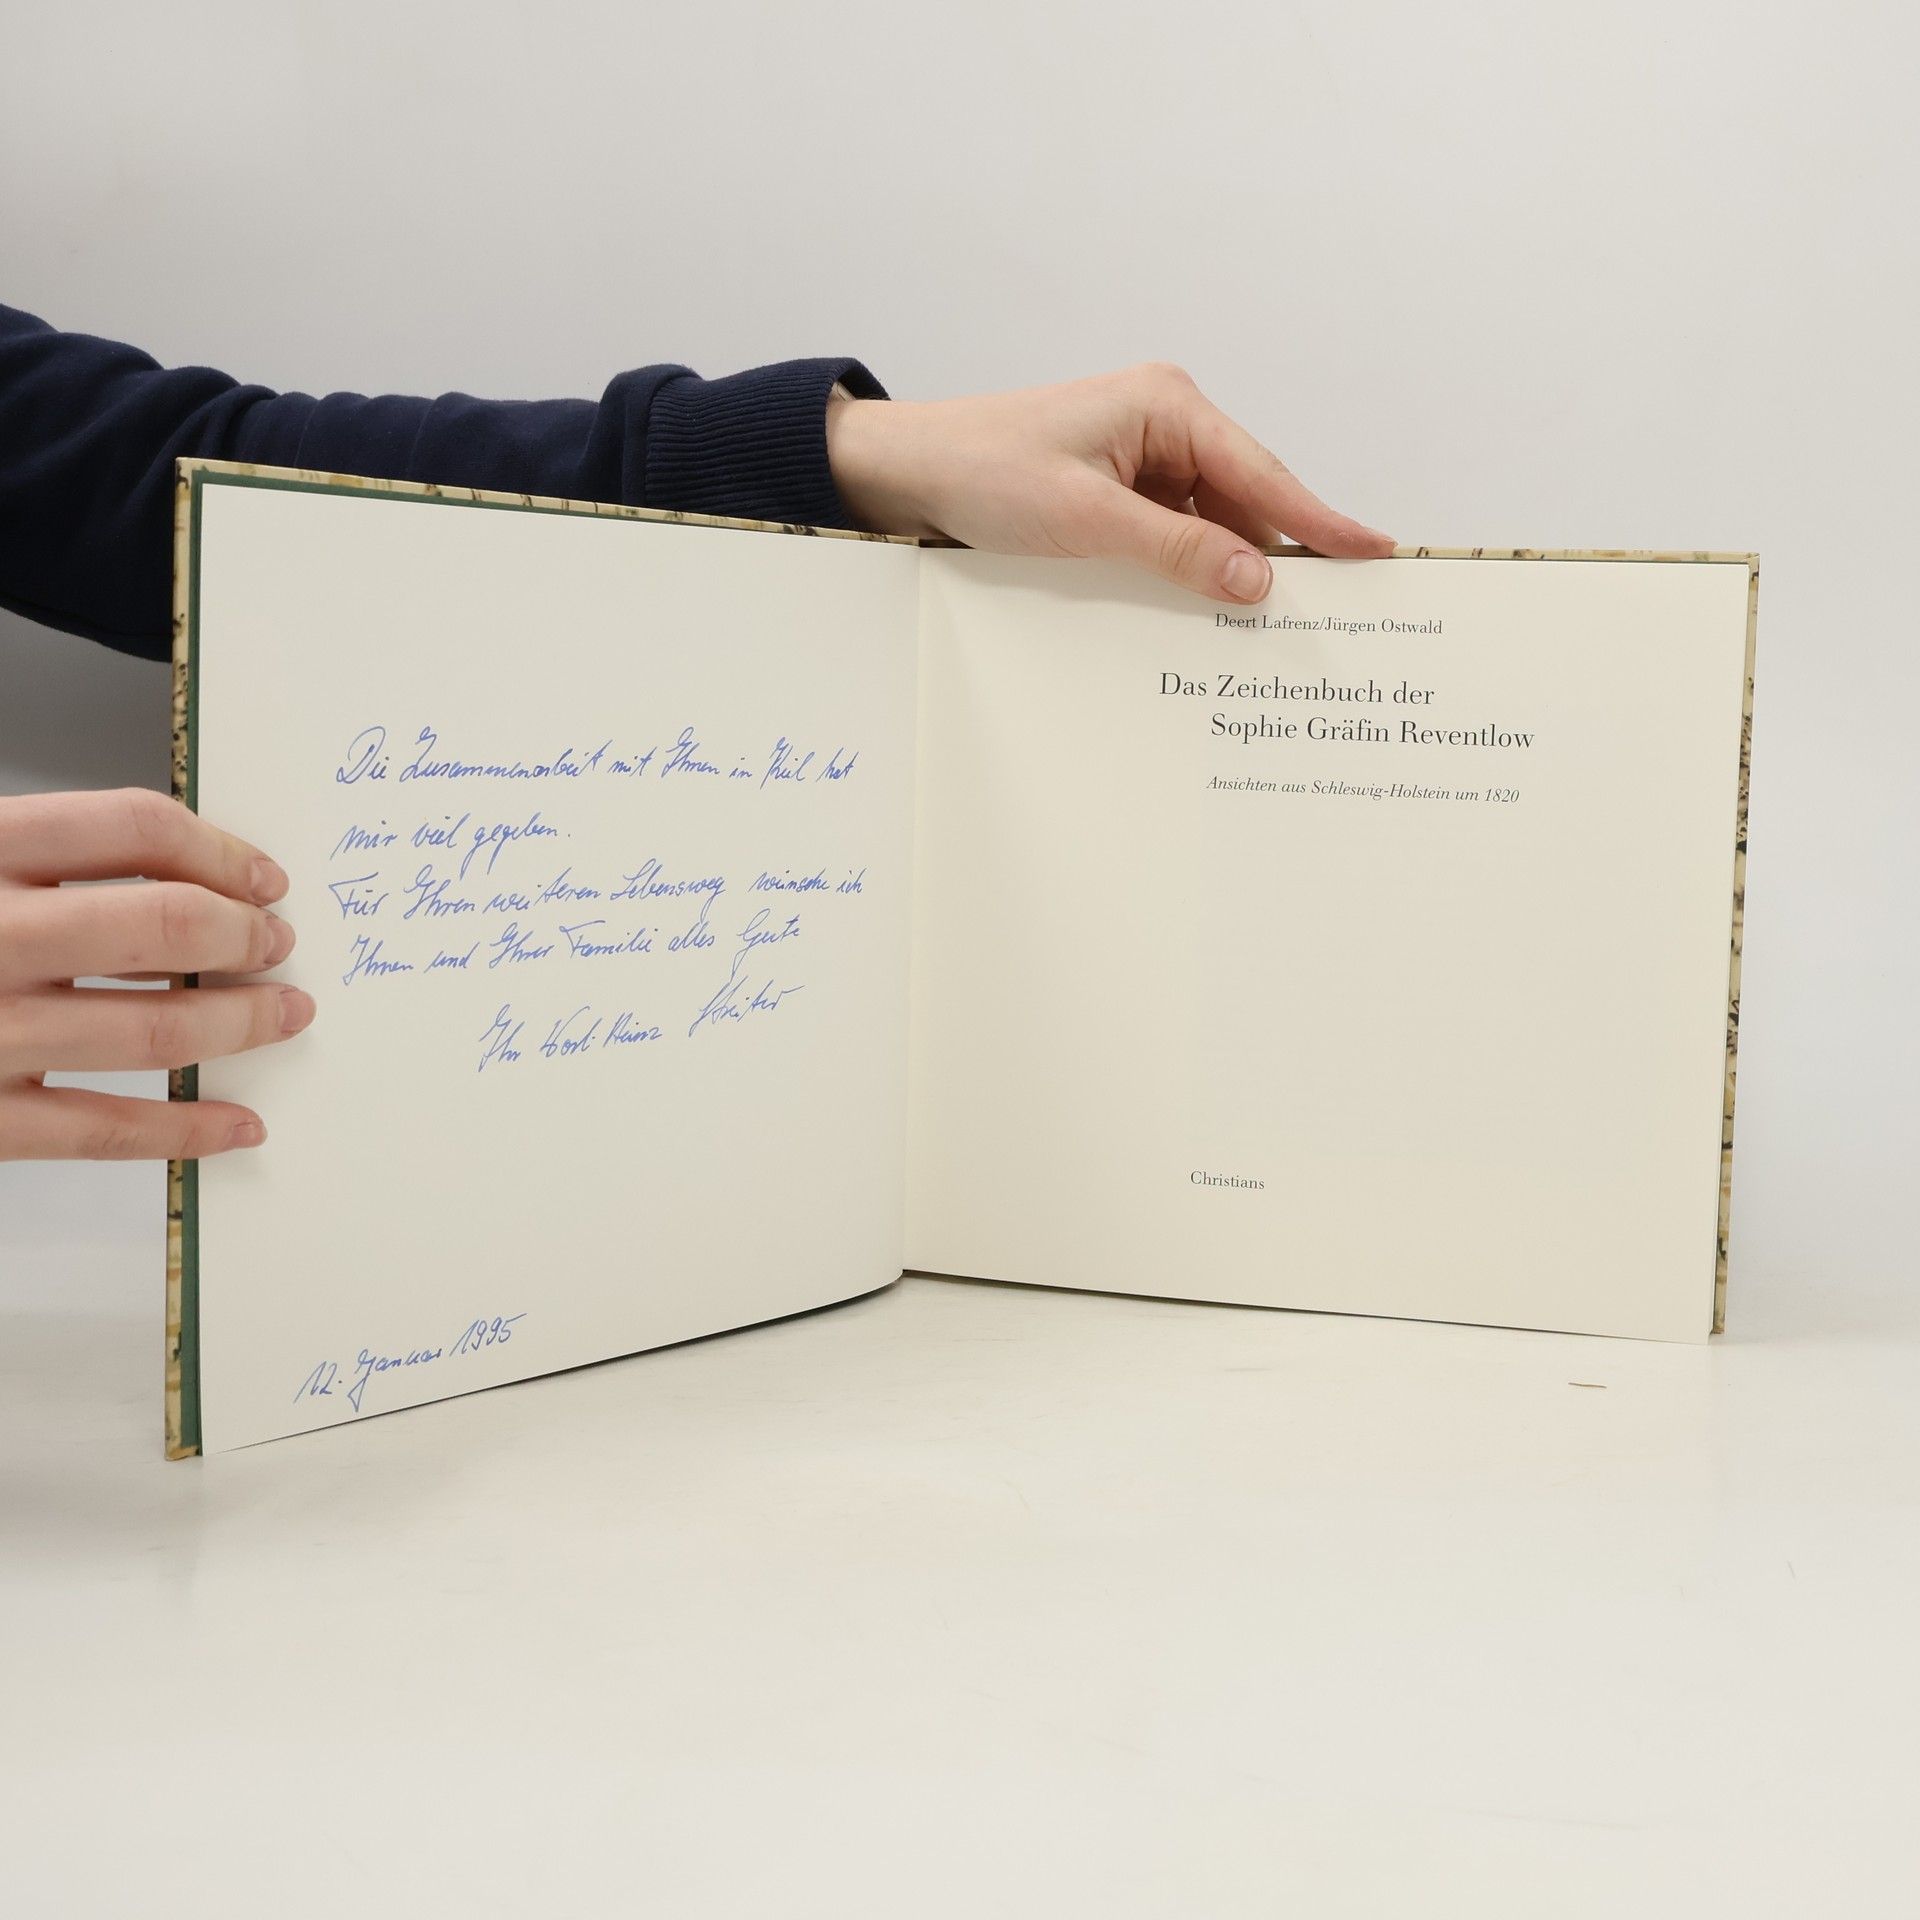 Die Zusammenarbeit mit Ihnen in Kiel hat
mir viel gegeben.
Für Ihren weiteren Lebensweg wünsche ich
Ihnen und Ihrer Familie alles Gute
Ihr Karl-Heinz
12. Januar 1995
Deert Lafrenz/Jürgen Ostwald
Das Zeichenbuch der
Sophie Gräfin Reventlow
Ansichten aus Schleswig-Holstein um 1820
Christians